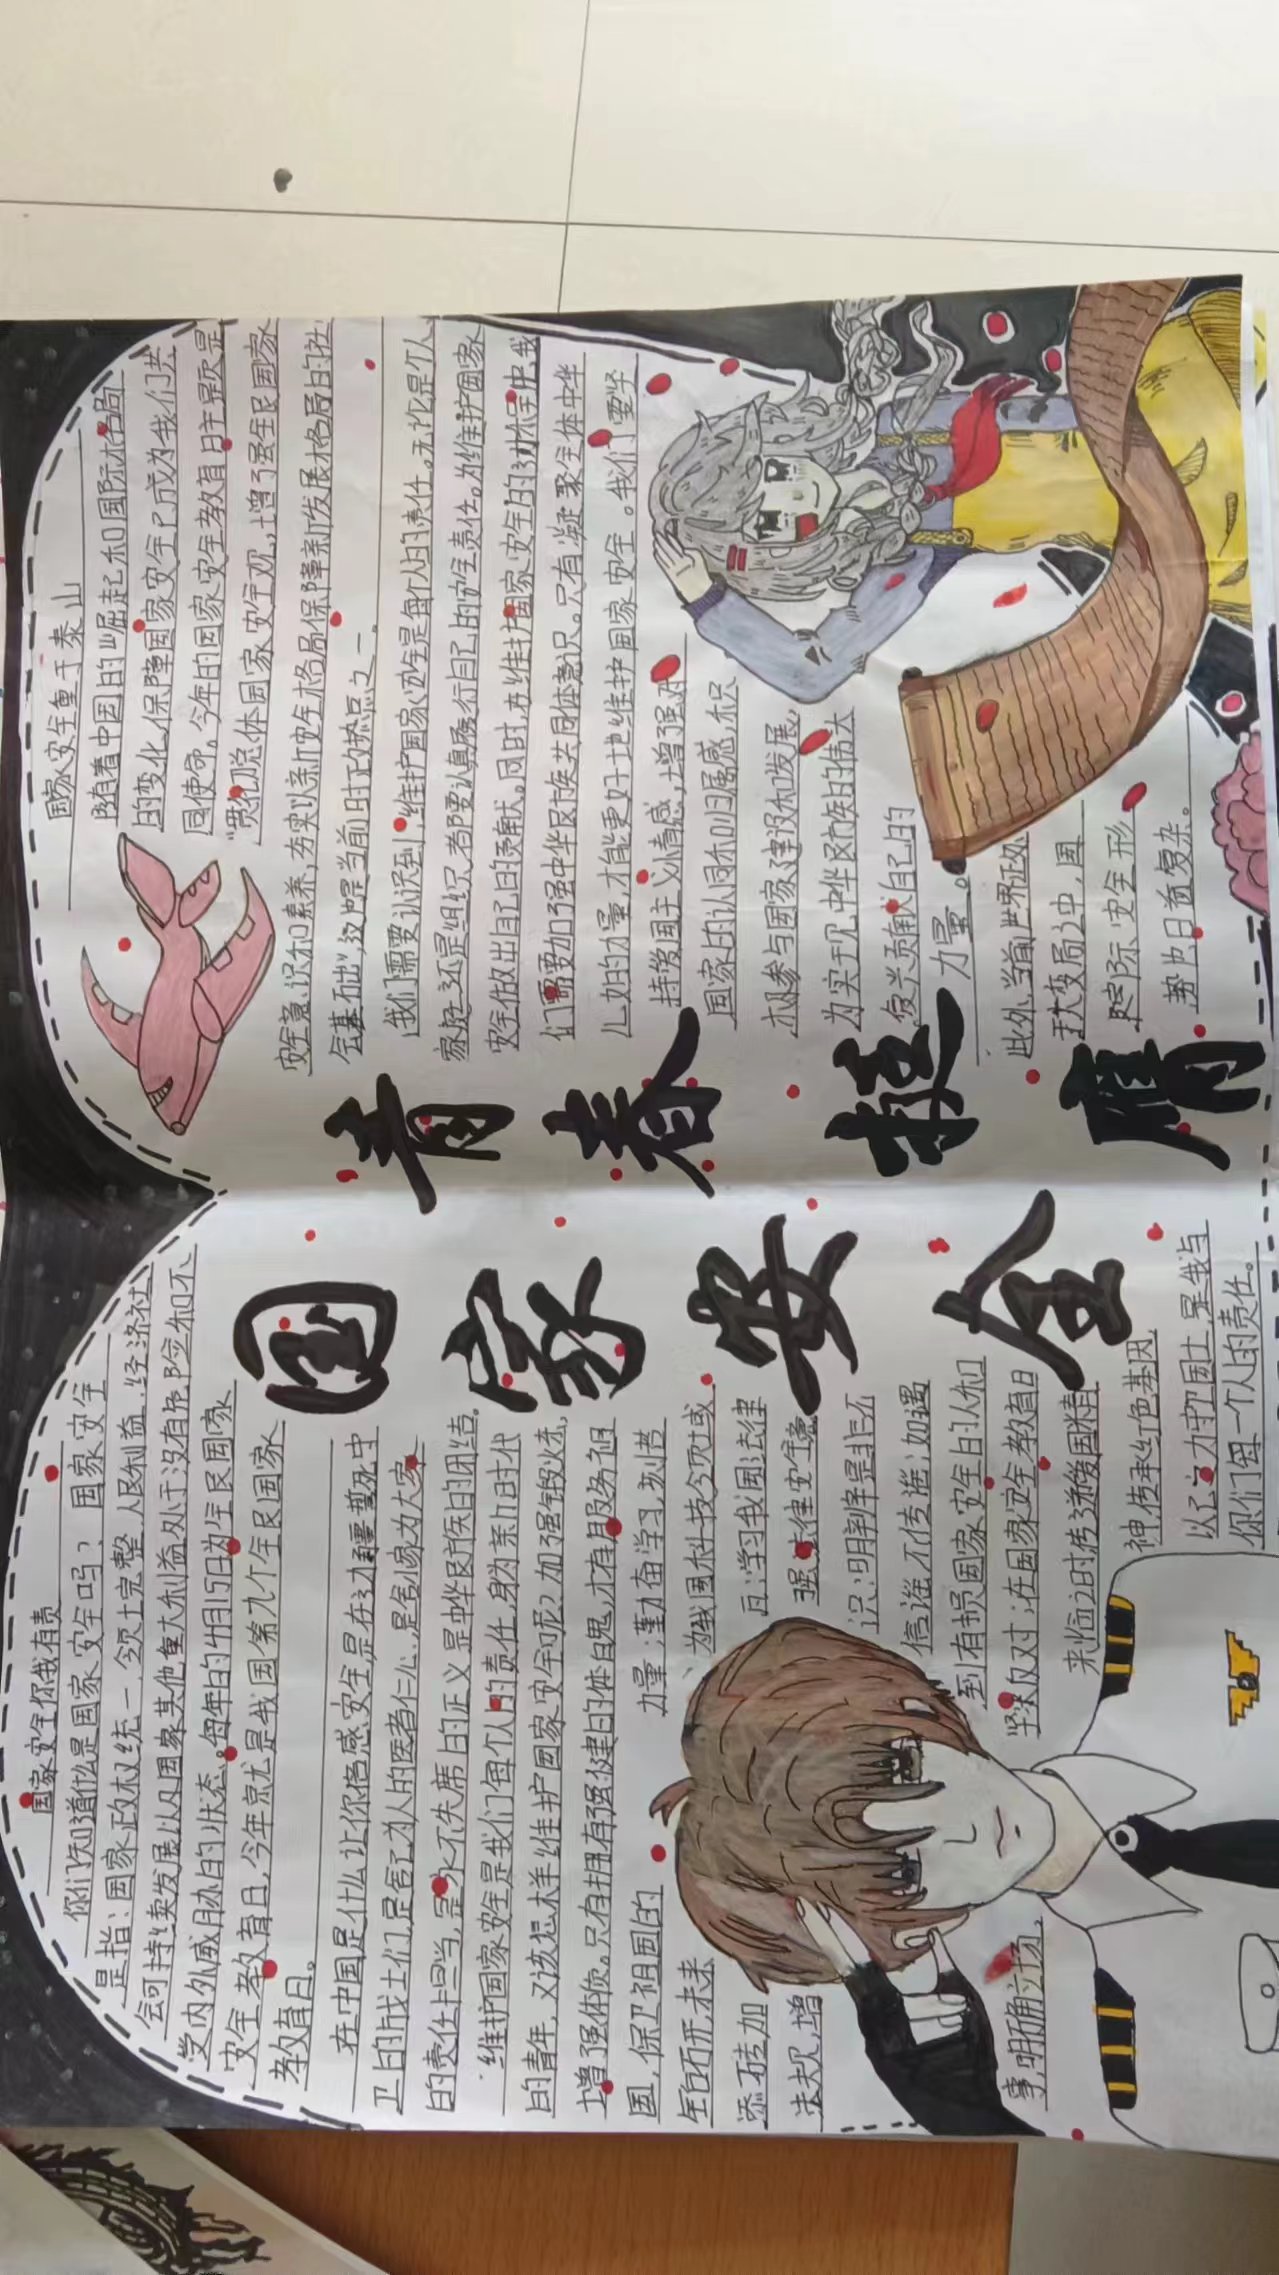 国家安全你我有责
你们知道什么是国家安全吗？国家安全
是指：国家政权统一、领土完整、人民利益、经济社
会可持续发展以及国家其他重大利益处于没有危险和不
受内外威胁的状态。每年的4月15日为全民国家
安全教育日，今年京尤是我国第九个全民国家
教育日。
在中国是什么让你倍感安全，是在边疆要死守
卫的战士们，是舍己为人的医者仁心，是舍小家为大家
的责任担当，是永不失席的正义，是中华民族的团结。
维护国家安全是我们每个人的责任，身为新时代
的青年，又该怎木羊维护国家安全呢？加强锻炼，
增强体质。只有拥有强健的体魄，才有服务祖
国，保卫祖国的
力量；勤奋学习，刻苦
钻研，未来
为我国科技领域
添砖加
瓦；学习我国法律
法规，增
强法律安全意
识；明辨是非，不
信谣，不传谣；如遇
到有损国家安全的人和
事，明确立场，
坚决反对；在国家安全教育日
来临之时传递爱国精
神，传承红色基因
以心力守国土，是我与
你们每一个人的责任。
国家安全
青春担膺
国家安全重于泰山
随着中国的崛起和国际格局
的变化，保障国家安全已成为我们共
同使命。今年的国家安全教育日主题是
“贯彻总体国家安全观，增强全民国家
安全意识和素养，夯实以新安全格局保障新发展格局的社
会基础”，这也是当前时政热点之一。
我们需要认识到，维护国家安全是每个人的责任。无论是个人、
家庭还是组织，都要认真履行自己的安全责任。为维护国家
安全做出自己的贡献。同时，在维护国家安全的过程中，我
们需要加强中华民族共同体意识。只有凝聚全体中华
儿女的力量，才能更好地维护国家安全。我们要坚
持爱国主义情感，增强对
国家的认同和归属感，积
极参与国家建设和发展，
为实现中华民族的伟大
复兴贡献自己的
力量。
此外，当前世界正处
于大变局之中，国
际安全形
势也日益复杂。